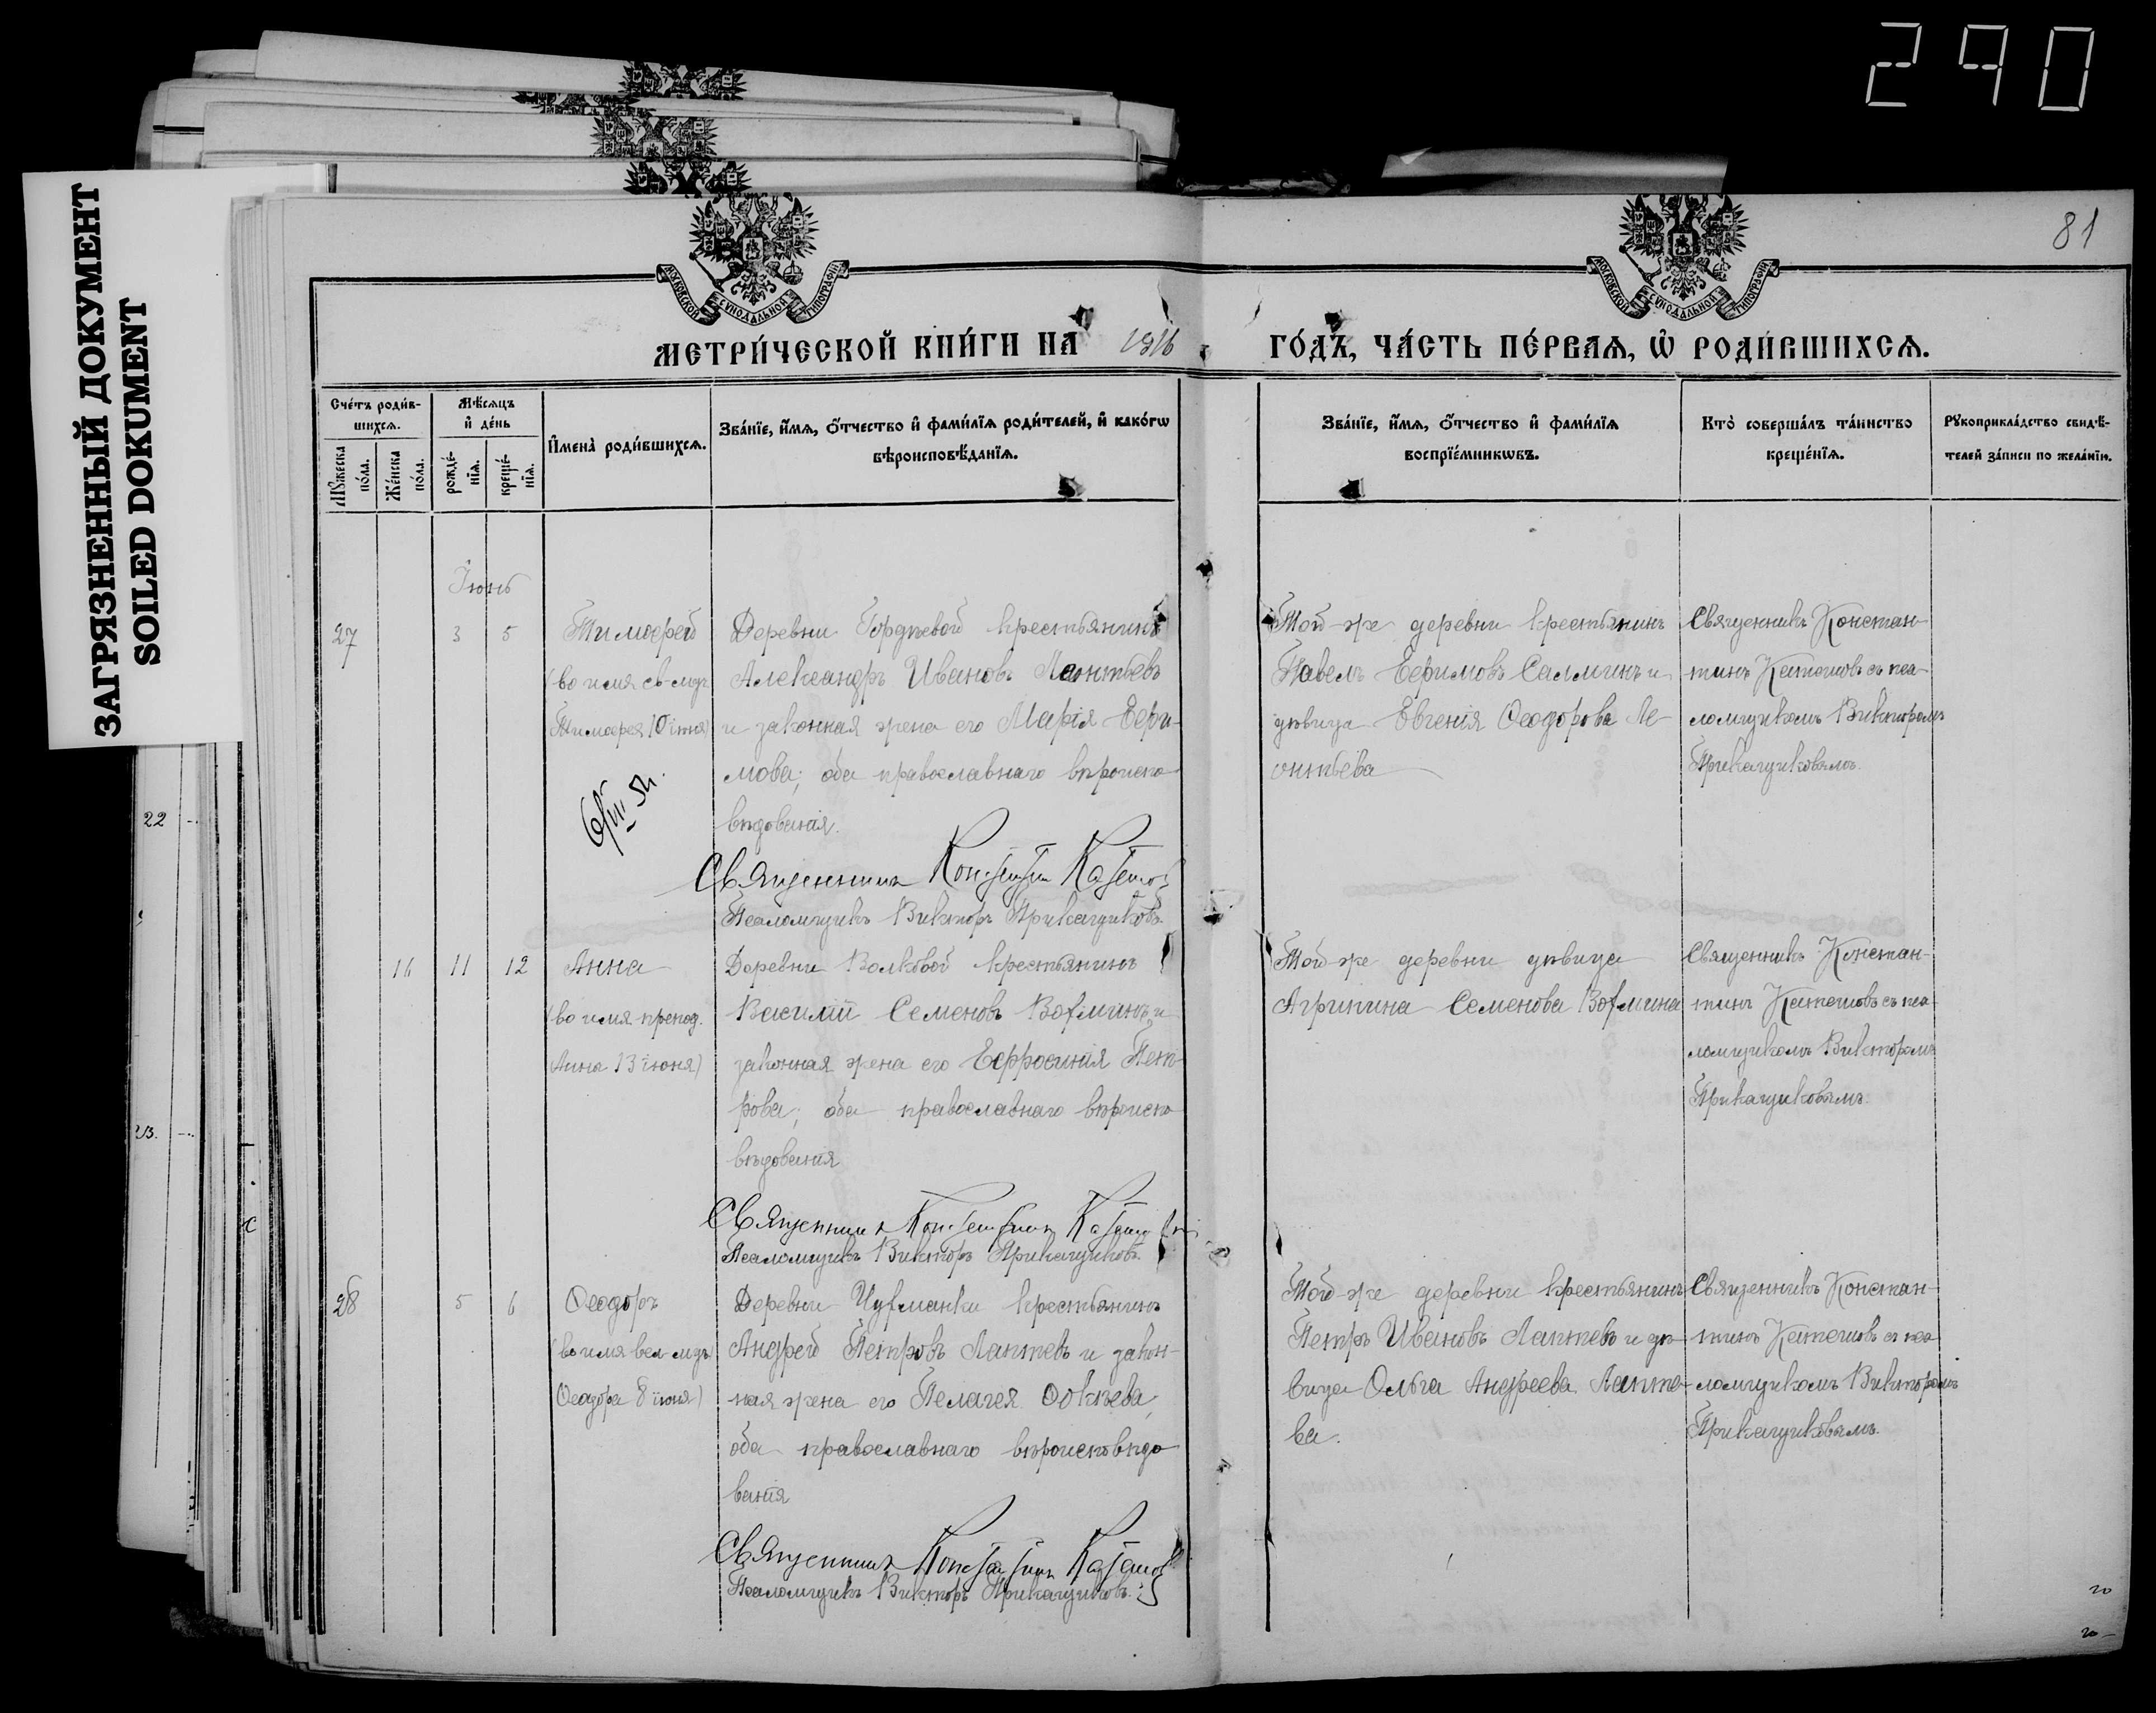 290
ЗАГРЯЗНЕННЫЙ ДОКУМЕНТ
SOILED DOKUMENT
81
МОСКОВСКОЙ СУНОДАЛЬНОЙ ТИПОГРАФІИ
МОСКОВСКОЙ СУНОДАЛЬНОЙ ТИПОГРАФІИ
МЕТРИ́ЧЕСКОЙ КНИ́ГИ НА 1916 ГО́ДЪ, ЧА́СТЬ ПЕ́РВАЯ, Ѽ РОДИ́ВШИХСЯ.
Сче́тъ роди́в-
шихся.
Мѣ́сяцъ
и҆ де́нь
Му́жеска
по́ла.
Же́нска
по́ла.
рожде́-
нїя.
креще́-
нїя.
И҆мена̀ роди́вшихся.
Зва́нїе, и҆́мя, ѻ҆́тчество и҆ фами́лїя роди́телей, и҆ како́гѡ
вѣроисповѣ́данїя.
Зва́нїе, и҆́мя, ѻ҆́тчество и҆ фами́лїя
воспрїе́мникѡвъ.
Кто̀ соверша́лъ та́инство
креще́нїя.
Рꙋкоприкла́дство свидѣ́-
телей за́писи по жела́нїю.
Іюнь
27 3 5 Тимоѳей
(во имя св. муч.
Тимоѳея 10 іюня)
Деревни Гордѣевой крестьянинъ
Александръ Ивановъ Леонтьевъ
и законная жена его Марія Ефи-
мова; оба православнаго вѣроиспо-
вѣдованія.
Священникъ Константинъ Катешовъ
Псаломщикъ Викторъ Прикащиковъ
Той-же деревни крестьянинъ
Павелъ Ефимовъ Салминъ и
дѣвица Евгенія Ѳеодорова Ле-
онтьева
Священникъ Констан-
тинъ Катешовъ съ пса-
ломщикомъ Викторомъ
Прикащиковымъ.
16 11 12 Анна
(во имя препод.
Анна 13 іюня)
Деревни Волковой крестьянинъ
Василій Семеновъ Вохминъ и
законная жена его Ефросинія Пет-
рова; оба православнаго вѣроиспо-
вѣдованія
Священникъ Константинъ Катешовъ
Псаломщикъ Викторъ Прикащиковъ.
Той-же деревни дѣвица
Агрипина Семенова Вохмина
Священникъ Констан-
тинъ Катешовъ съ пса-
ломщикомъ Викторомъ
Прикащиковымъ.
28 5 6 Ѳеодоръ
(во имя вел. муч.
Ѳеодора 8 іюня)
Деревни Чухманки крестьянинъ
Андрей Петровъ Лаптевъ и закон-
ная жена его Пелагея
оба православнаго вѣроисповѣдо-
ванія
Священникъ Константинъ Катешовъ
Псаломщикъ Викторъ Прикащиковъ.
Той-же деревни крестьянинъ
Петръ Ивановъ Лаптевъ и дѣ-
вица Ольга Андреева Лапте-
ва.
Священникъ Констан-
тинъ Катешовъ съ пса-
ломщикомъ Викторомъ
Прикащиковымъ.
22